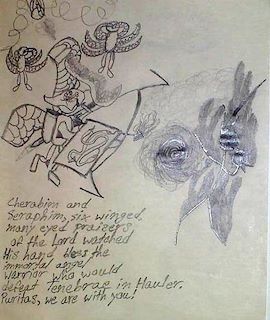 Cherabim and
Seraphim, six winged,
many eyed praicers
of the Lord watched
His hand bless the
immortal angel
warrior who would
defeat Tenebrae in Hauler.
Puritas, we are with you!